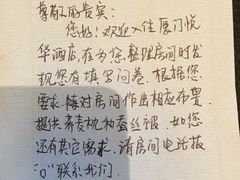 尊敬的贵宾:
您好!欢迎入住厦门悦
华酒店,在为您整理房间时发
现您有填写问卷,根据您
要求,将对房间作出相应布置,
提供荞麦枕和蚕丝被,如您
还有其它需求,请房间电话按
"0"联系我们.